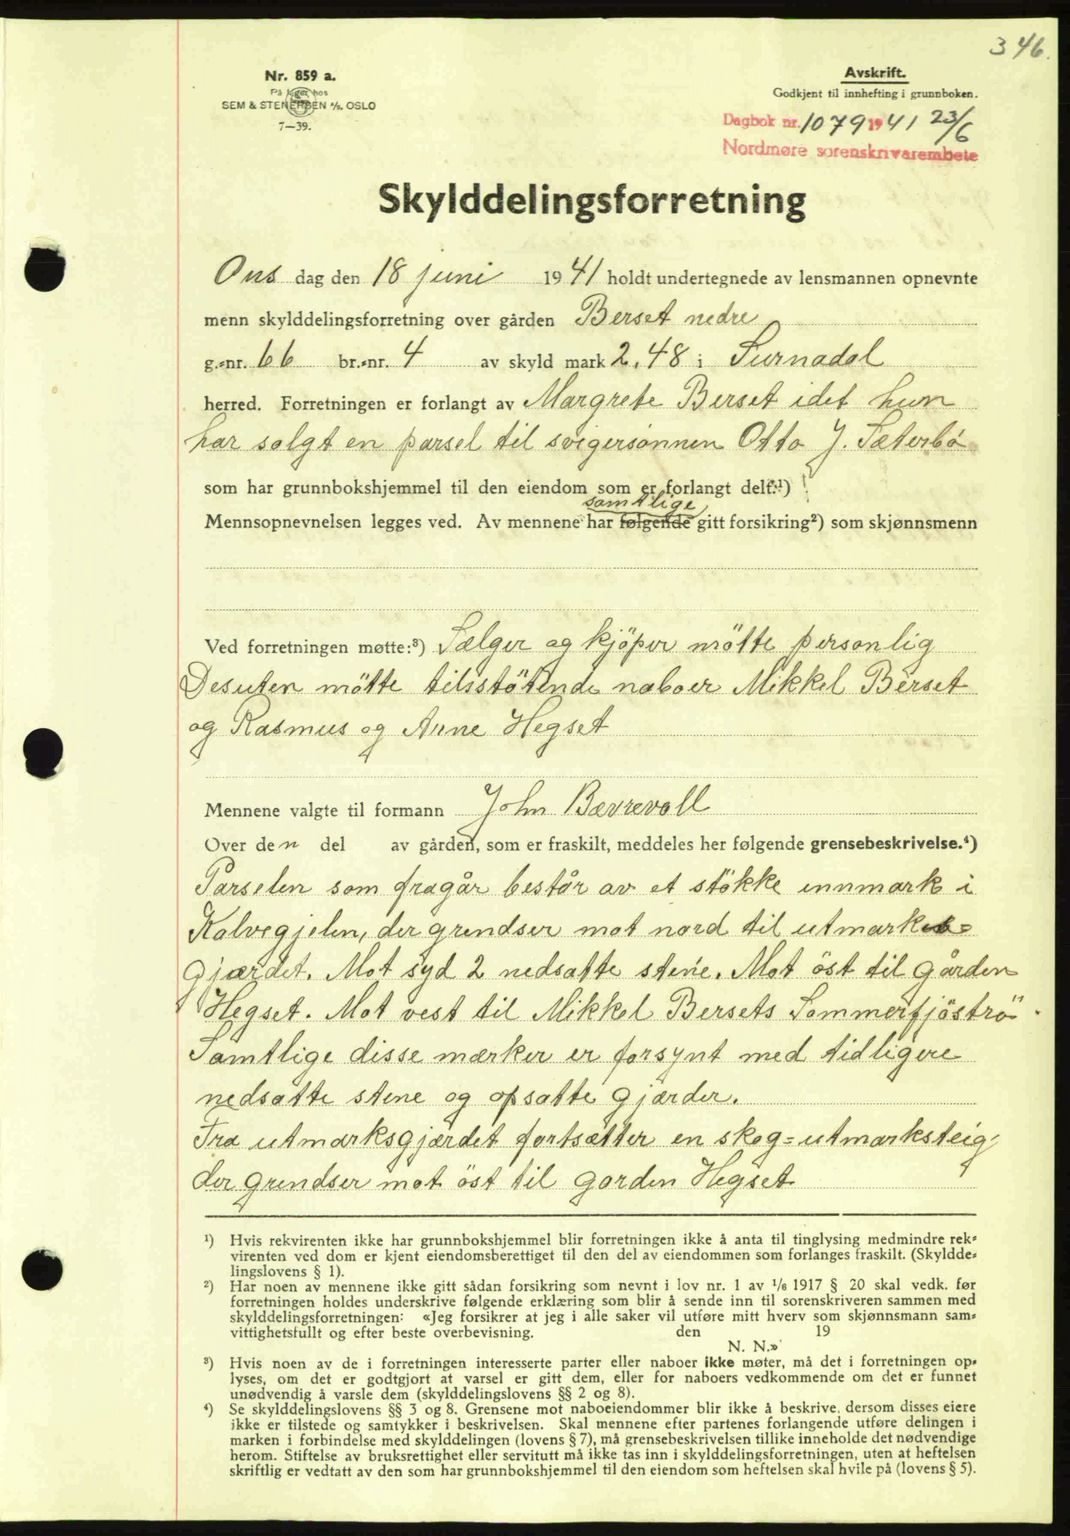 346.
Nr. 859 a.
På lager hos
SEM & STENERSEN A/S. OSLO
7—39.
Avskrift.
Godkjent til innhefting i grunnboken.
Dagbok nr. 1079 1941 23/6
Nordmøre sorenskrivarembete
Skylddelingsforretning
Ons dag den 18 juni 1941 holdt undertegnede av lensmannen opnevnte
menn skylddelingsforretning over gården Berset nedre
g.-nr. 66 br.-nr. 4 av skyld mark 2,48 i Surnadal
herred. Forretningen er forlangt av Margrete Berset idet hun
har solgt en parsel til svigersønnen Otto J. Sæterbö
som har grunnbokshjemmel til den eiendom som er forlangt delt.¹)
samtlige
Mennsopnevnelsen legges ved. Av mennene har følgende gitt forsikring²) som skjønnsmenn
Ved forretningen møtte:³) Sælger og kjöper mötte personlig
Desuten mötte tilsstötende naboer Mikkel Berset
og Rasmus og Arne Hegset
Mennene valgte til formann John Bævrevoll
Over den del av gården, som er fraskilt, meddeles her følgende grensebeskrivelse.⁴)
Parselen som fragår består av et stökke innmark i
Kalvegjelen, der grendser mot nord til utmarks=
gjærdet. Mot syd 2 nedsatte stene. Mot öst til gården
Hegset. Mot vest til Mikkel Bersets Sommerfjöströ.
Samtlige disse mærker er forsynt med tidligere
nedsatte stene og opsatte gjærder.
Fra utmarksgjærdet fortsætter en skog=utmarksteig
der grendser mot öst til gorden Hegset
¹) Hvis rekvirenten ikke har grunnbokshjemmel blir forretningen ikke å anta til tinglysing medmindre rek-
virenten ved dom er kjent eiendomsberettiget til den del av eiendommen som forlanges fraskilt. (Skyldde-
lingslovens § 1).
²) Har noen av mennene ikke gitt sådan forsikring som nevnt i lov nr. 1 av 1/6 1917 § 20 skal vedk. før
forretningen holdes underskrive følgende erklæring som blir å sende inn til sorenskriveren sammen med
skylddelingsforretningen: «Jeg forsikrer at jeg i alle saker vil utføre mitt hverv som skjønnsmann sam-
vittighetsfullt og efter beste overbevisning. den 19
N. N.»
³) Hvis noen av de i forretningen interesserte parter eller naboer ikke møter, må det i forretningen op-
lyses, om det er godtgjort at varsel er gitt dem, eller for naboers vedkommende om det er funnet
unødvendig å varsle dem (skylddelingslovens §§ 2 og 8).
⁴) Se skylddelingslovens §§ 3 og 8. Grensene mot naboeiendommer blir ikke å beskrive, dersom disses eiere
ikke er tilstede og samtykker i beskrivelsen. Skal mennene efter partenes forlangende utføre delingen i
marken i forbindelse med skylddelingen (lovens § 7), må grensebeskrivelsen tillike inneholde det nødvendige
herom. Stiftelse av bruksrettighet eller servitutt må ikke tas inn i skylddelingsforretningen, uten at heftelsen
skriftlig er vedtatt av den som har grunnbokshjemmel til den eiendom som heftelsen skal hvile på (lovens § 5).